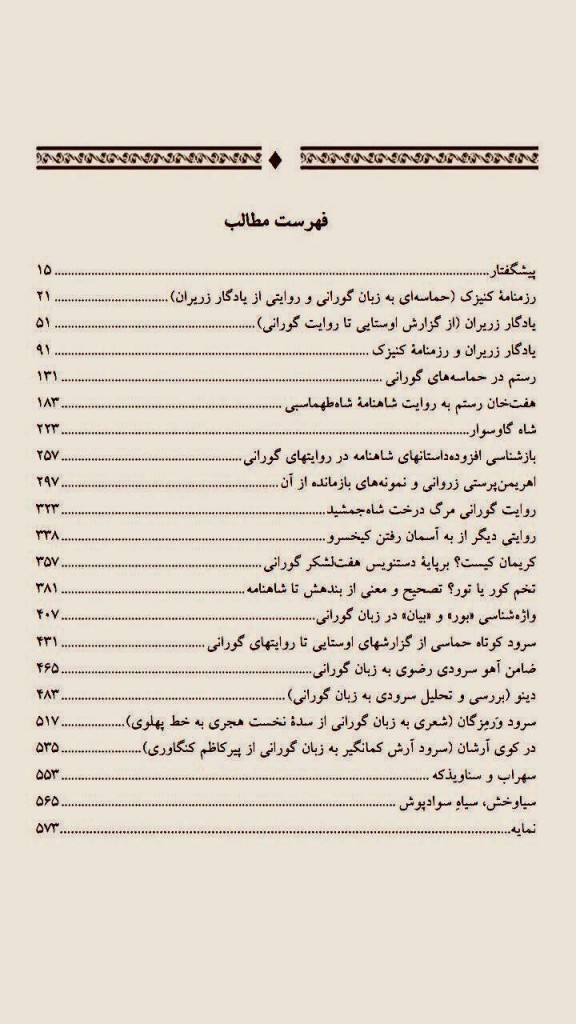 فهرست مطالب
پیشگفتار ۱۵
رزمنامهٔ کنیزک (حماسه‌ای به زبان گورانی و روایتی از یادگار زریران) ۲۱
یادگار زریران (از گزارش اوستایی تا روایت گورانی) ۵۱
یادگار زریران و رزمنامهٔ کنیزک ۹۱
رستم در حماسه‌های گورانی ۱۳۱
هفت‌خان رستم به روایت شاهنامهٔ شاه‌طهماسبی ۱۸۳
شاه گاوسوار ۲۲۳
بازشناسی افزوده‌داستانهای شاهنامه در روایتهای گورانی ۲۵۷
اهریمن‌پرستی زروانی و نمونه‌های بازمانده از آن ۲۹۷
روایت گورانی مرگ درخت شاه‌جمشید ۳۲۳
روایتی دیگر از به آسمان رفتن کیخسرو ۳۳۸
کریمان کیست؟ برپایهٔ دستنویس هفت‌لشکر گورانی ۳۵۷
تخم کور یا تور؟ تصحیح و معنی از بندهش تا شاهنامه ۳۸۱
واژه‌شناسی «بور» و «بیان» در زبان گورانی ۴۰۷
سرود کوتاه حماسی از گزارشهای اوستایی تا روایتهای گورانی ۴۳۱
ضامن آهو سرودی رضوی به زبان گورانی ۴۶۵
دینو (بررسی و تحلیل سرودی به زبان گورانی) ۴۸۳
سرود وَرمِزگان (شعری به زبان گورانی از سدهٔ نخست هجری به خط پهلوی) ۵۱۷
در کوی آرشان (سرود آرش کمانگیر به زبان گورانی از پیرکاظم کنگاوری) ۵۳۵
سهراب و سناویذکه ۵۵۳
سیاوخش، سیاهِ سوادپوش ۵۶۵
نمایه ۵۷۳